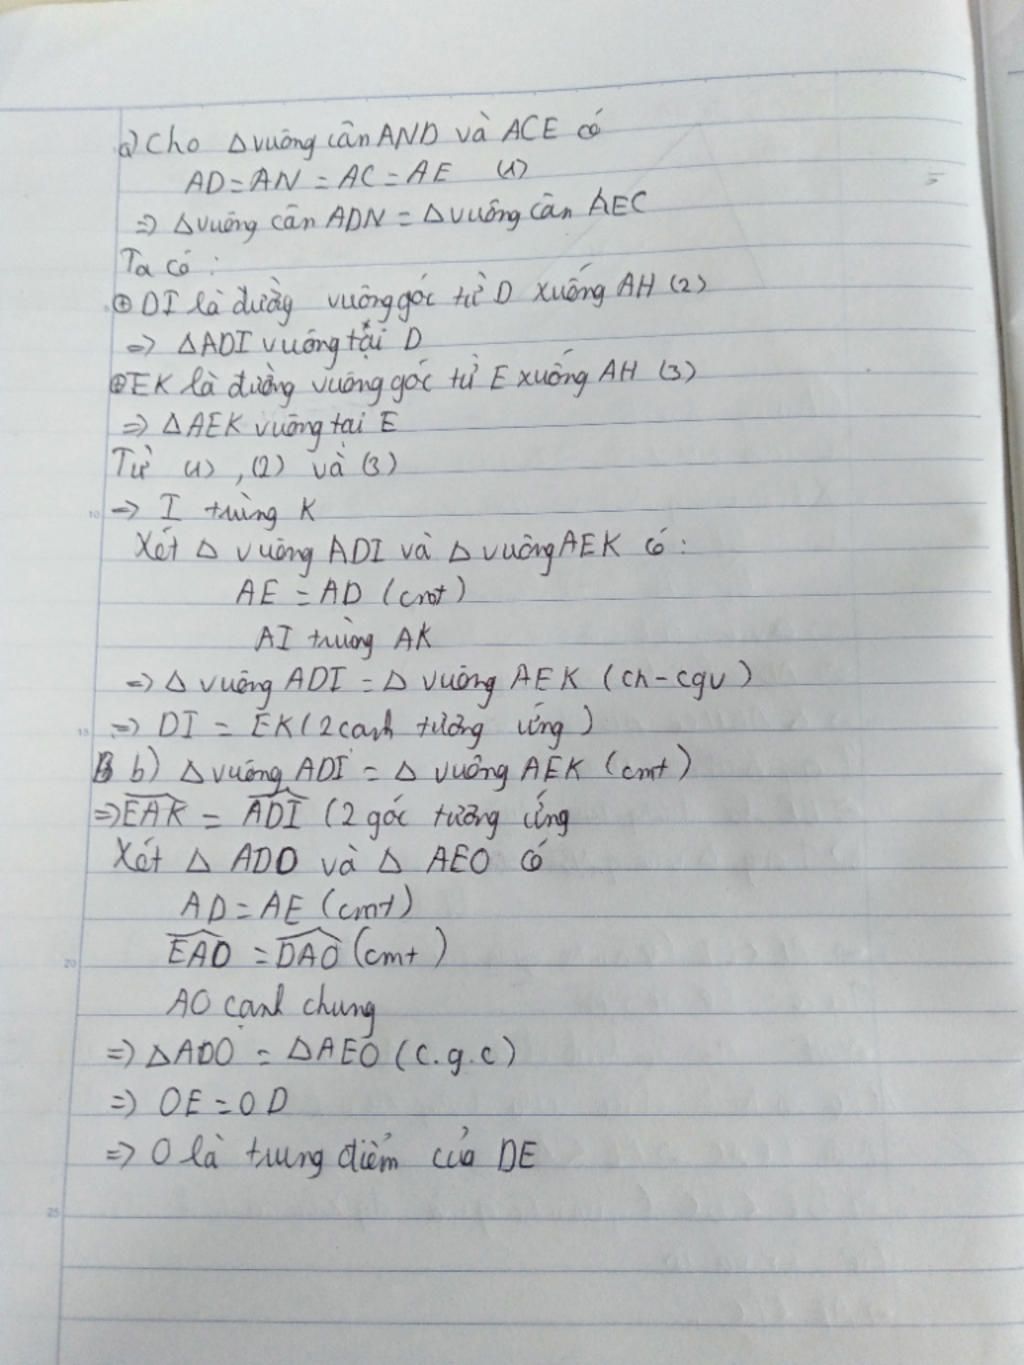 a) Cho Δ vuông cân AND và ACE có
AD = AN = AC = AE (1)
=> Δ vuông cân ADN = Δ vuông cân AEC
Ta có :
⊕ DI là đường vuông góc từ D xuống AH (2)
=> ΔADI vuông tại D
⊕ EK là đường vuông góc từ E xuống AH (3)
=> ΔAEK vuông tại E
Từ (1) , (2) và (3)
10 => I trùng K
Xét Δ vuông ADI và Δ vuông AEK có :
AE = AD (cmt)
AI trùng AK
=> Δ vuông ADI = Δ vuông AEK (ch-cgv)
15 => DI = EK (2 cạnh tương ứng )
B b) Δ vuông ADI = Δ vuông AEK (cmt)
=> EAK = ADI (2 góc tương ứng
Xét Δ ADO và Δ AEO có
AD = AE (cmt)
20 EAO = DAO (cmt)
AO cạnh chung
=> ΔADO = ΔAEO (c.g.c)
=> OE = OD
=> O là trung điểm của DE
25